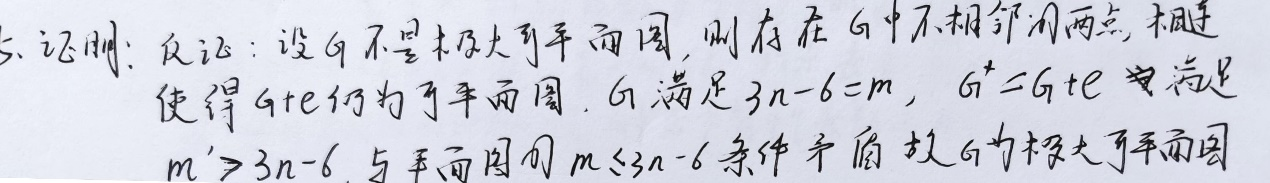 5. 证明: 反证: 设 G 不是极大可平面图, 则存在 G 中不相邻的两点, 相连
使得 G+e 仍为可平面图. G 满足 3n-6=m, G*=G+e 满足
m'>3n-6, 与平面图的 m≤3n-6 条件矛盾 故 G 为极大可平面图